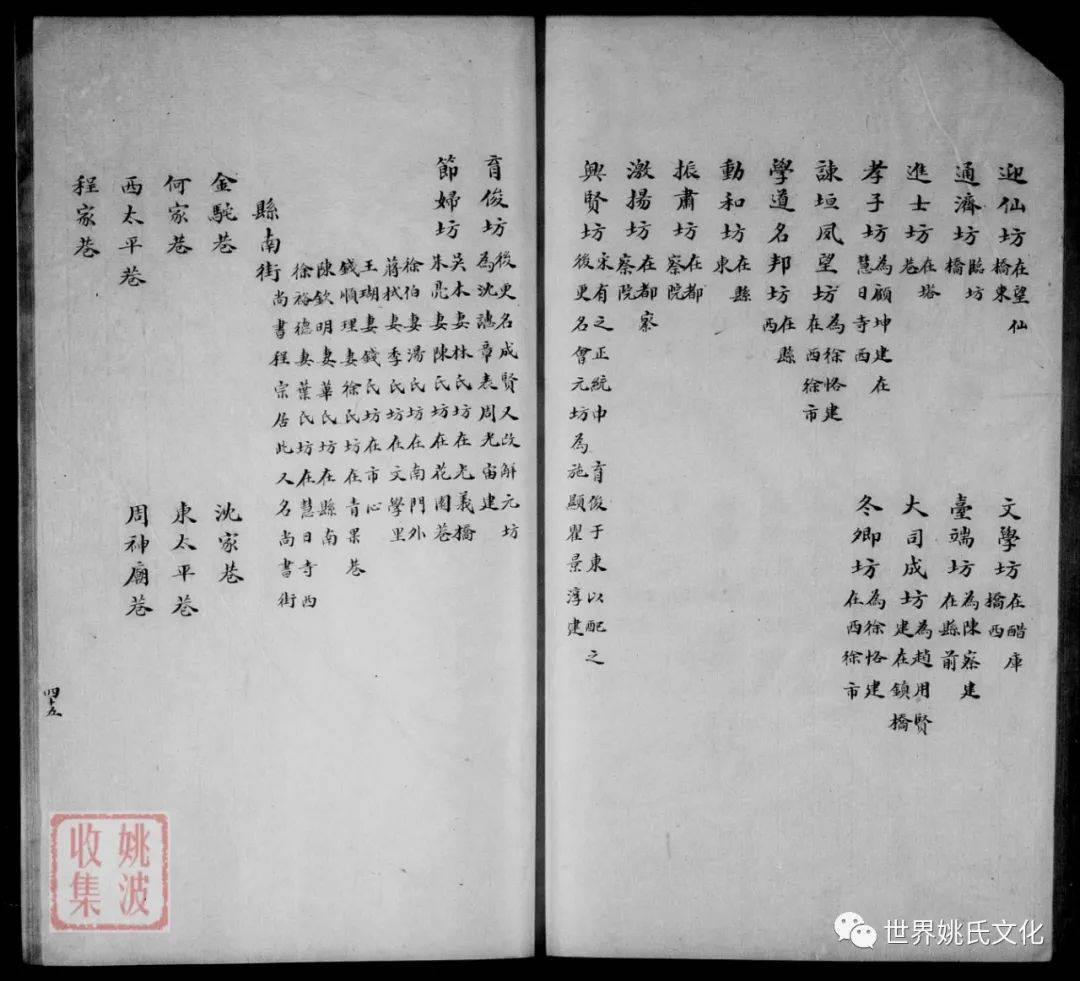 迎仙坊 在望仙橋東 文學坊 在醋庫橋西
通濟坊 臨坊橋 臺端坊 為陳察建在縣前
進士坊 在塔巷 大司成坊 為趙用賢建在鎮橋
孝子坊 為顧坤建在慧日寺西 冬卿坊 為徐恪建在西徐市
諫垣鳳望坊 為徐恪建在西徐市
學道名邦坊 在縣西
動和坊 在縣東
振肅坊 在都察院
激揚坊 在都察院
興賢坊 宋有之正統中育俊于東以配之後更名會元坊為施顯瞿景淳建
育俊坊 後更名成賢又改解元坊為沈譓章表周光宙建
節婦坊 吳木妻林氏坊在光義橋
朱亮妻陳氏坊在花園巷
徐伯妻湯氏坊在南門外
蔣栻妻季氏坊在文學里
王瑚妻錢氏坊在市心
錢順理妻徐氏坊在青果巷
陳欽明妻華氏坊在縣南
徐裕德妻葉氏坊在慧日寺西
縣南街 尚書程宗居此又名尚書街
金駝巷 沈家巷
何家巷 東太平巷
西太平巷 周神廟巷
程家巷
四十五
姚波
收集
世界姚氏文化